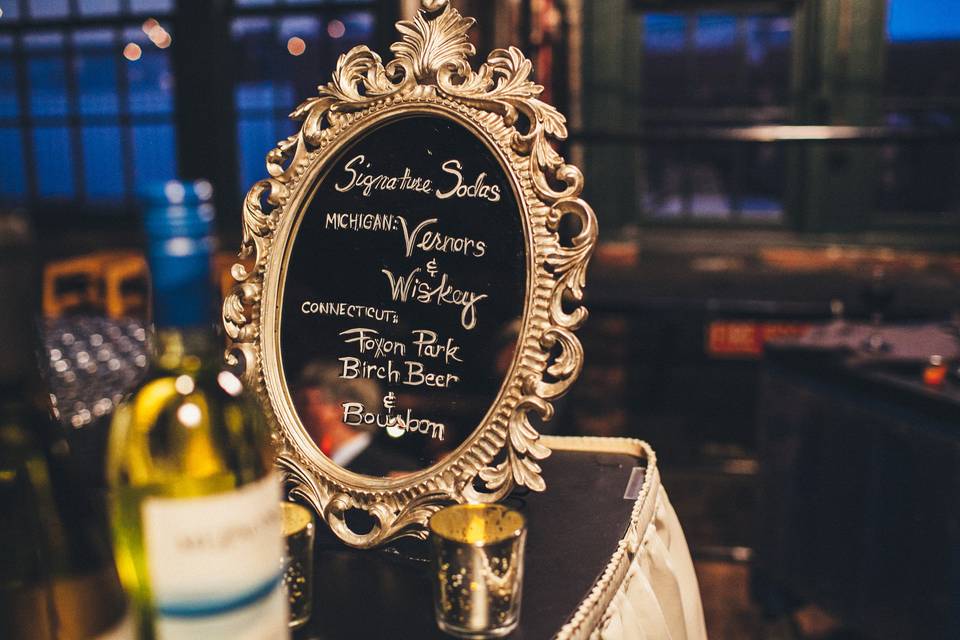 Signature Sodas
MICHIGAN: Vernors
&
Wiskey
CONNECTICUT:
Foxon Park
Birch Beer
&
Bourbon